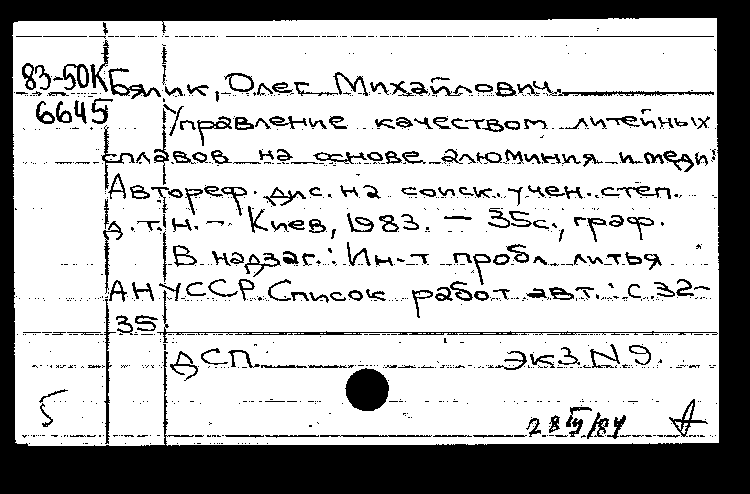 83-50К Бялик, Олег Михайлович.
6645 Управление качеством литейных
сплавов на основе алюминия и меди:
Автореф. дис. на соиск. учен. степ.
д.т.н. - Киев, 1983. - 35с., граф.
В надзаг.: Ин-т пробл. литья
АН УССР. Список работ авт.: с.32-
35.
ДСП. Экз. N 9.
5 28 IV/84